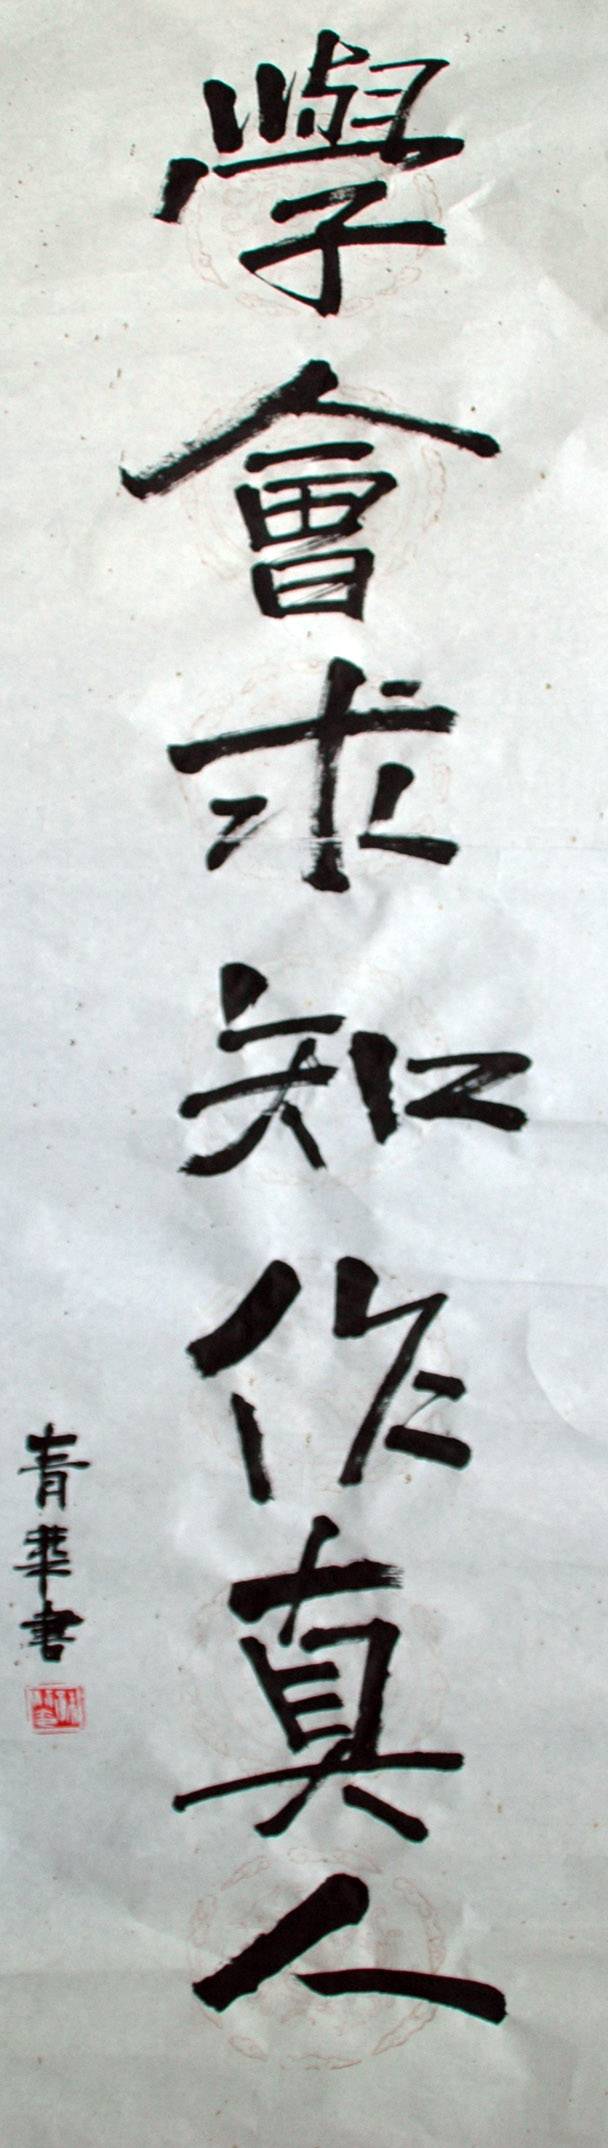 學會求知作真人
青華書